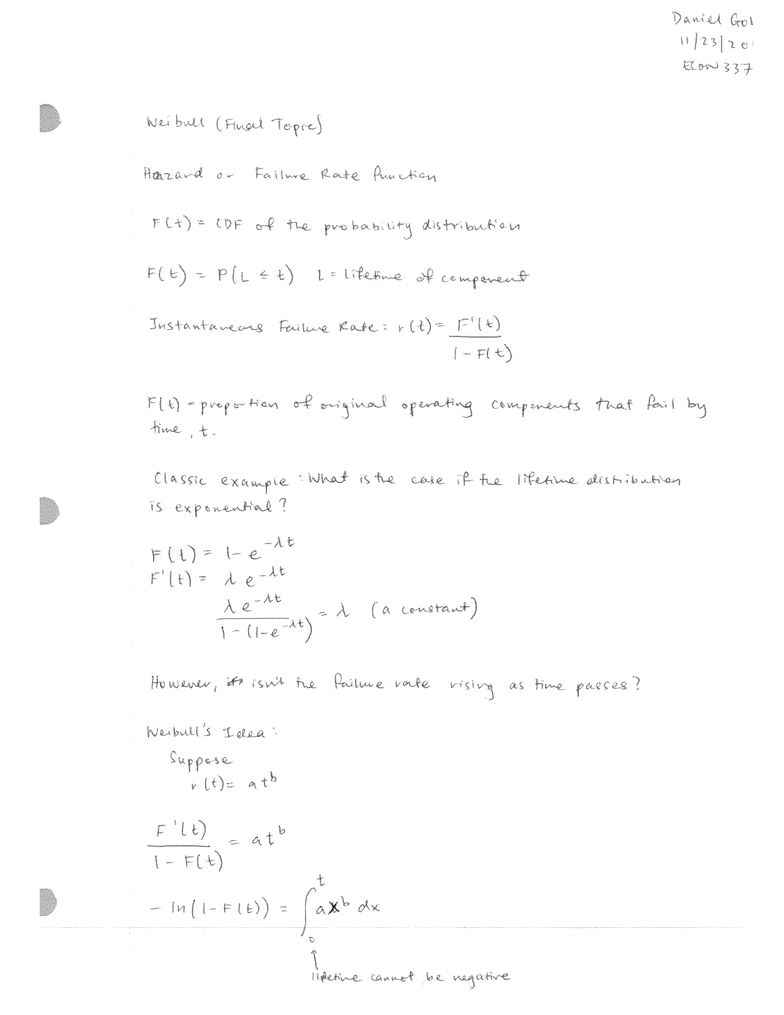 Daniel Gol
11/23/20
ECON 337
Weibull (Final Topic)
Hazard or Failure Rate Function
F(t) = CDF of the probability distribution
F(t) = P(L ≤ t) L = lifetime of component
Instantaneous Failure Rate: r(t) = F'(t)
1 - F(t)
F(t) = proportion of original operating components that fail by
time, t.
Classic example: What is the case if the lifetime distribution
is exponential?
F(t) = 1 - e^-λt
F'(t) = λ e^-λt
λ e^-λt
1 - (1 - e^-λt) = λ (a constant)
However, isn't the failure rate rising as time passes?
Weibull's Idea:
Suppose
r(t) = at^b
F'(t)
1 - F(t) = at^b
- ln(1 - F(t)) = ∫₀ᵗ ax^b dx
↑
lifetime cannot be negative